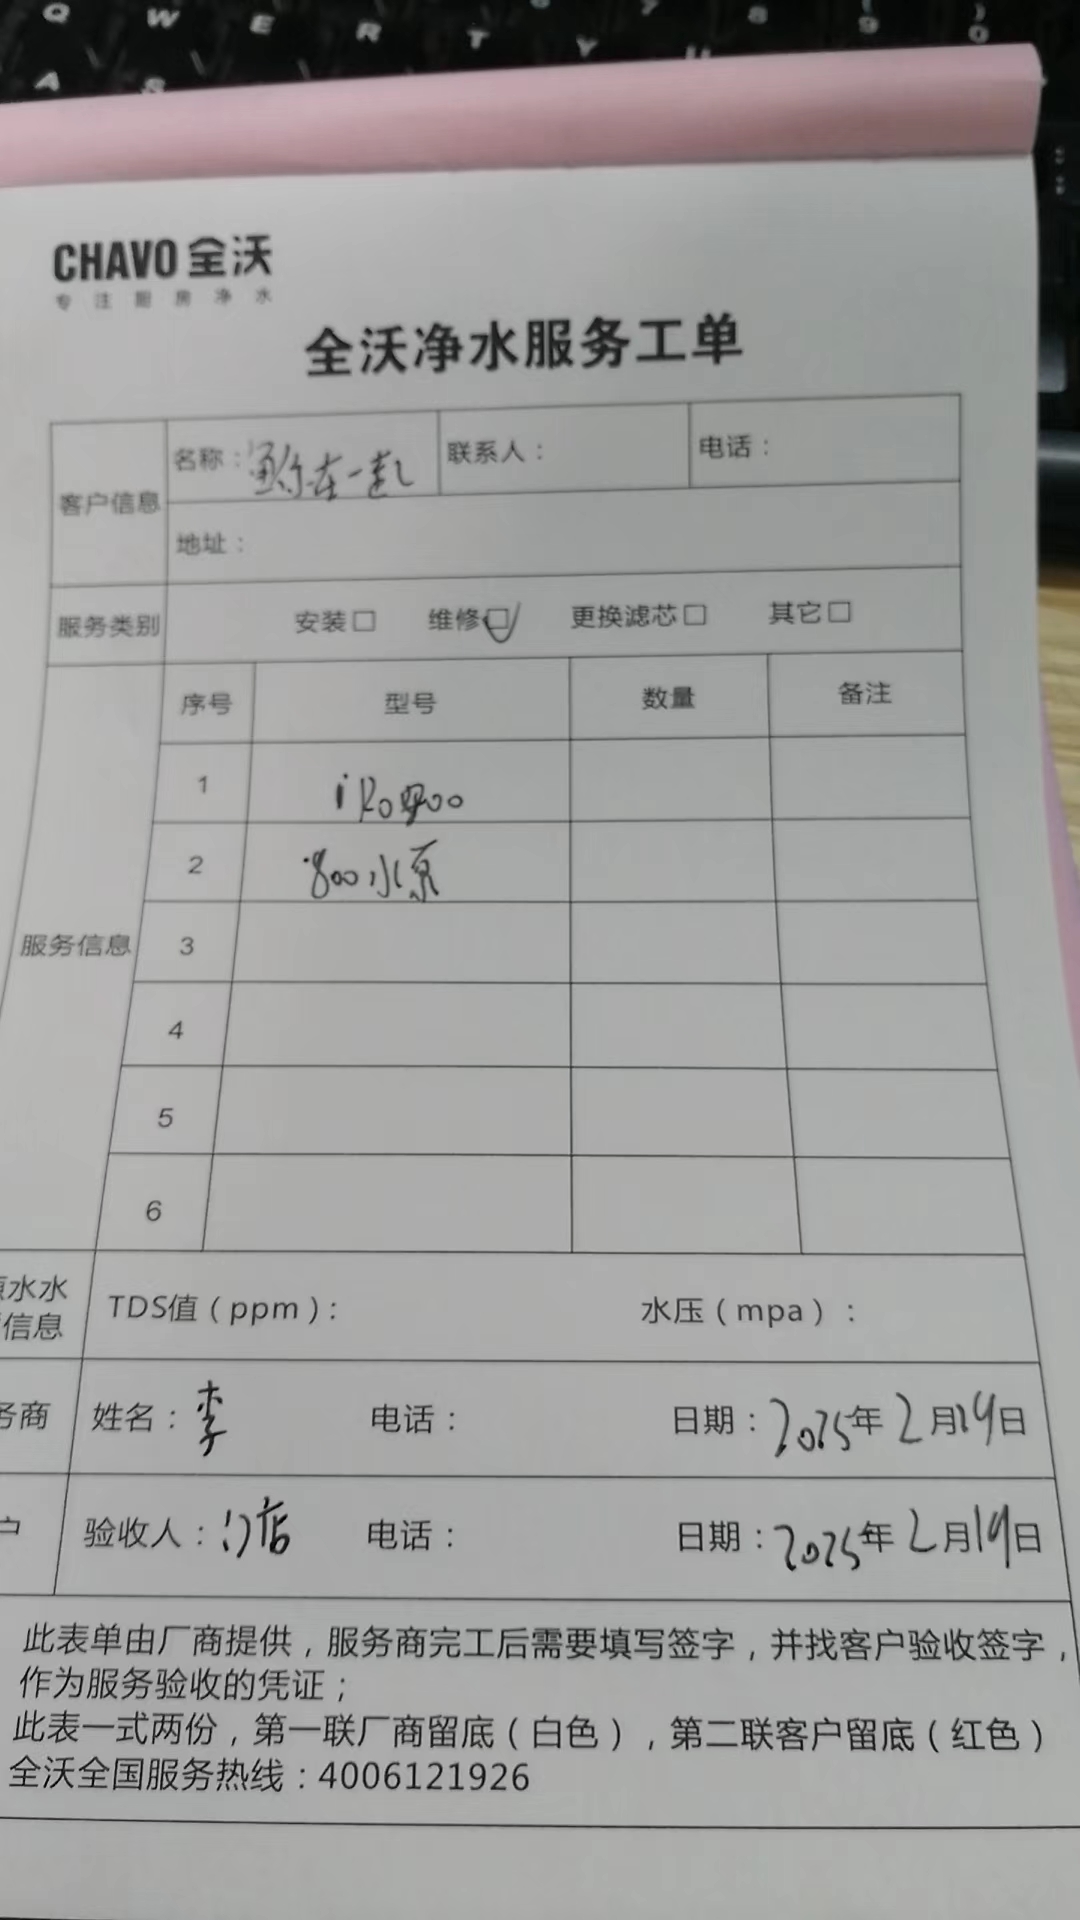 Q W E R T Y U 7 8 9 0
A S
CHAVO 全沃
专注厨房净水
全沃净水服务工单
客户信息 名称：鱼你在一起 联系人： 电话：
地址：
服务类别 安装□ 维修☑ 更换滤芯□ 其它□
服务信息
序号 型号 数量 备注
1
2 800水泵
3
4
5
6
水水
信息
TDS值（ppm）： 水压（mpa）：
务商 姓名：李 电话： 日期：2025年2月19日
户 验收人：门店 电话： 日期：2025年2月19日
此表单由厂商提供，服务商完工后需要填写签字，并找客户验收签字，
作为服务验收的凭证；
此表一式两份，第一联厂商留底（白色），第二联客户留底（红色）
全沃全国服务热线：4006121926